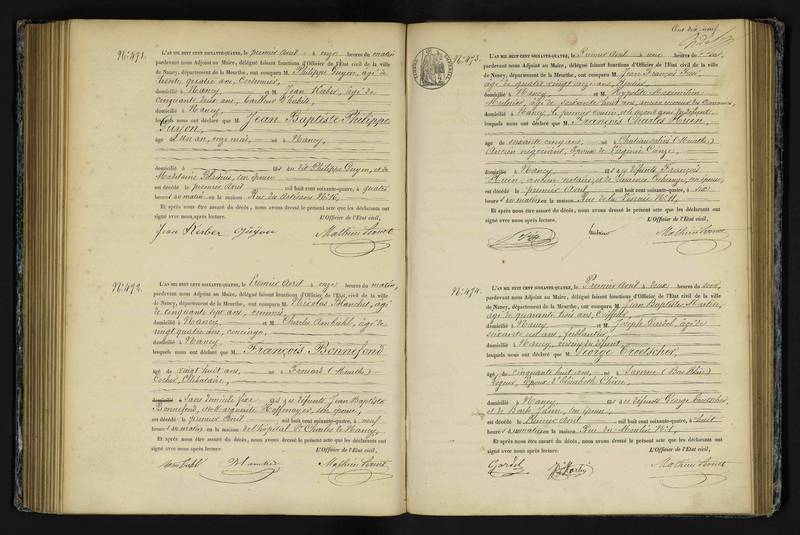 N.º 471.
L'AN MIL HUIT CENT SOIXANTE-QUATRE, le premier Avril à onze heures du matin
pardevant nous Adjoint au Maire, délégué faisant fonctions d'Officier de l'État civil de la ville
de Nancy, département de la Meurthe, ont comparu M. Philippe Guyon, âgé de
trente quatre ans, Cordonnier,
domicilié à Nancy, et M. Jean Kerber, âgé de
Cinquante deux ans, tailleur d'habits,
domicilié à Nancy,
lesquels nous ont déclaré que M. Jean Baptiste Philippe
Guyon,
âgé d'Un an, onze mois, né à Nancy,
domicilié à fils du dit Philippe Guyon, et de
Madelaine son épouse
est décédé le premier Avril mil huit cent soixante-quatre, à quatre
heures du matin en la maison Rue des Artisans N.º 16,
Et après nous être assuré du décès, nous avons dressé le présent acte que les déclarants ont
signé avec nous, après lecture. L'Officier de l'État civil,
Jean Kerber Guyon Mathieu
N.º 472.
L'AN MIL HUIT CENT SOIXANTE-QUATRE, le Premier Avril à onze heures du matin,
pardevant nous Adjoint au Maire, délégué faisant fonctions d'Officier de l'État civil de la ville
de Nancy, département de la Meurthe, ont comparu M. Nicolas Blanchet, âgé
de cinquante sept ans, commis
domicilié à Nancy et M. Charles âgé de
vingt quatre ans, concierge,
domicilié à Nancy,
lesquels nous ont déclaré que M. François Bonnefond
âgé de vingt huit ans, né à (Meurthe)
Cocher, Célibataire,
domicilié à Sans domicile fixe fils des défunts Jean Baptiste
Bonnefond, et de Marguerite son épouse,
est décédé le premier Avril mil huit cent soixante-quatre, à neuf
heures du matin en la maison de l'hôpital S.t Charles de Nancy,
Et après nous être assuré du décès, nous avons dressé le présent acte que les déclarants ont
signé avec nous, après lecture. L'Officier de l'État civil,
Mathieu
Cent dix-neuf
N.º 473.
L'AN MIL HUIT CENT SOIXANTE-QUATRE, le Premier Avril à une heures du Soir,
pardevant nous Adjoint au Maire, délégué faisant fonctions d'Officier de l'État civil de la ville
de Nancy, département de la Meurthe, ont comparu M. Jean François
âgé de quatre vingt ans,
domicilié à Nancy et M. Hypolite Maximilien
âgé de soixante huit ans,
domicilié à Nancy, le premier cousin
lesquels nous ont déclaré que M. François Charles Husin,
âgé de soixante cinq ans, né à Chateausalins (Meurthe)
Ancien négociant, époux de
domicilié à Nancy fils des défunts François
ancien notaire, et de son épouse,
est décédé le premier Avril mil huit cent soixante-quatre, à six
heures du matin en la maison Rue de la N.º 11,
Et après nous être assuré du décès, nous avons dressé le présent acte que les déclarants ont
signé avec nous, après lecture. L'Officier de l'État civil,
Mathieu
N.º 474.
L'AN MIL HUIT CENT SOIXANTE-QUATRE, le Premier Avril à deux heures du Soir,
pardevant nous Adjoint au Maire, délégué faisant fonctions d'Officier de l'État civil de la ville
de Nancy, département de la Meurthe, ont comparu M. Jean Baptiste Martin,
âgé de quarante trois ans, Coiffeur,
domicilié à Nancy et M. Joseph âgé de
soixante un ans, ferblantier
domicilié à Nancy, voisins du défunt
lesquels nous ont déclaré que M. George Troetscher,
âgé de cinquante huit ans né à Saverne (Bas Rhin)
époux d'Elisabeth
domicilié à Nancy fils des défunts George Troetscher,
et de Barbe son épouse,
est décédé le Premier Avril mil huit cent soixante-quatre, à huit
heures du matin en la maison Rue du Moulin N.º 1,
Et après nous être assuré du décès, nous avons dressé le présent acte que les déclarants ont
signé avec nous, après lecture. L'Officier de l'État civil,
Martin Mathieu